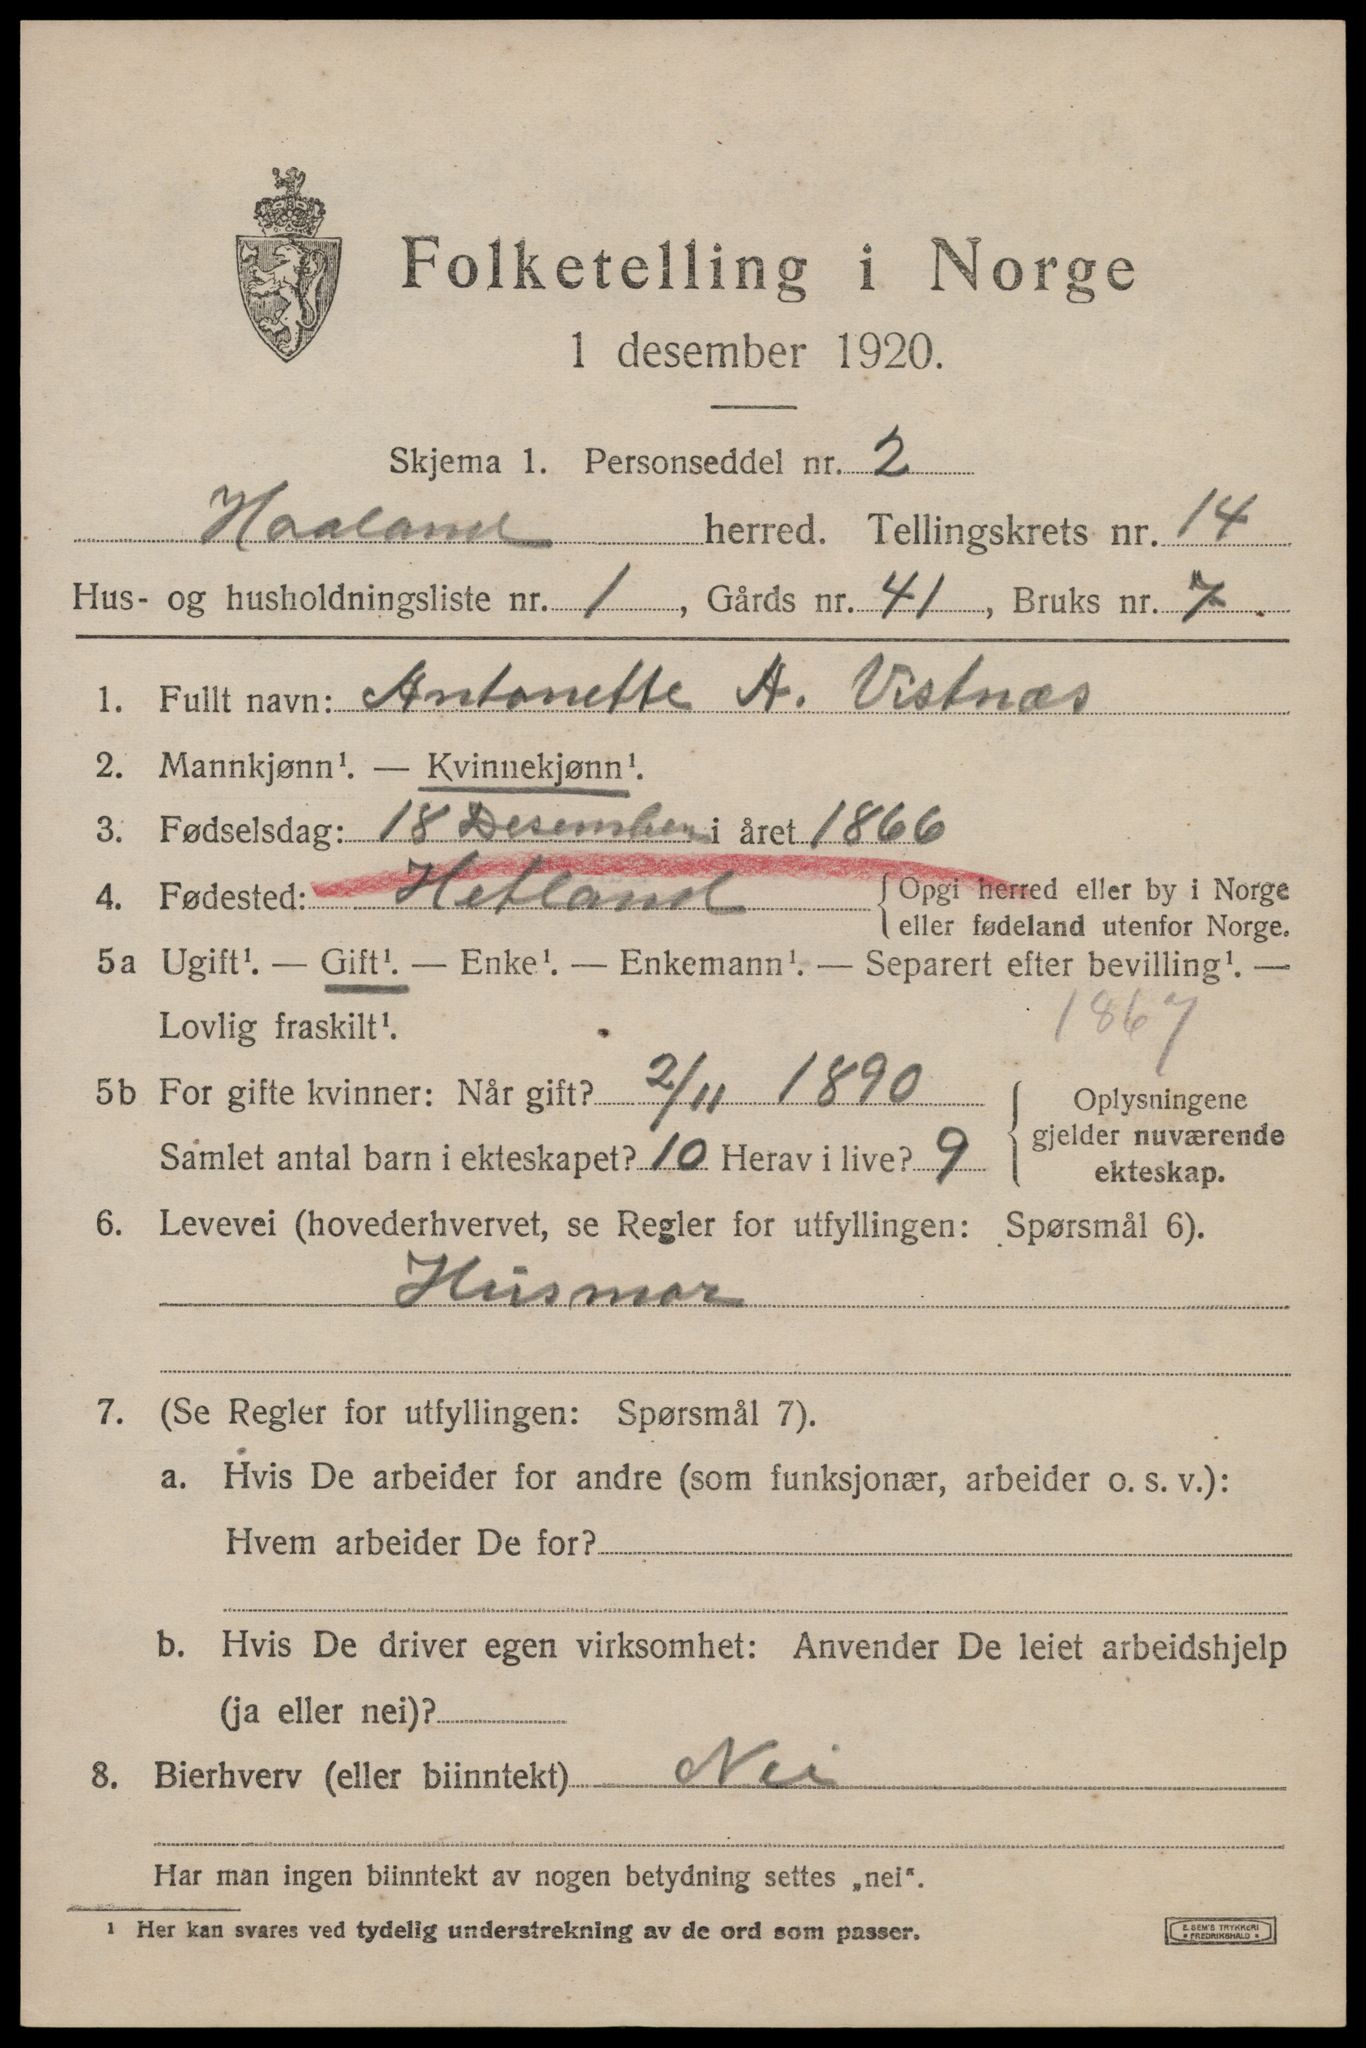 Folketelling i Norge
1 desember 1920.
Skjema 1. Personseddel nr. 2
Haaland herred. Tellingskrets nr. 14
Hus- og husholdningsliste nr. 1, Gårds nr. 41, Bruks nr. 7.
1. Fullt navn: Antonette A. Vistnæs
2. Mannkjønn¹. — Kvinnekjønn¹.
3. Fødselsdag: 18 Desember i året 1866
4. Fødested: Hetland { Opgi herred eller by i Norge
eller fødeland utenfor Norge.
5a Ugift¹. — Gift¹. — Enke¹. — Enkemann¹. — Separert efter bevilling¹. —
Lovlig fraskilt¹. 1867
5b For gifte kvinner: Når gift? 2/11 1890
Samlet antal barn i ekteskapet? 10 Herav i live? 9
{ Oplysningene
gjelder nuværende
ekteskap.
6. Levevei (hovederhvervet, se Regler for utfyllingen: Spørsmål 6).
Husmor
7. (Se Regler for utfyllingen: Spørsmål 7).
a. Hvis De arbeider for andre (som funksjonær, arbeider o. s. v.):
Hvem arbeider De for?
b. Hvis De driver egen virksomhet: Anvender De leiet arbeidshjelp
(ja eller nei)?
8. Bierhverv (eller biinntekt) Nei
Har man ingen biinntekt av nogen betydning settes „nei“.
¹ Her kan svares ved tydelig understrekning av de ord som passer.
E. SEM'S TRYKKERI
FREDRIKSHALD